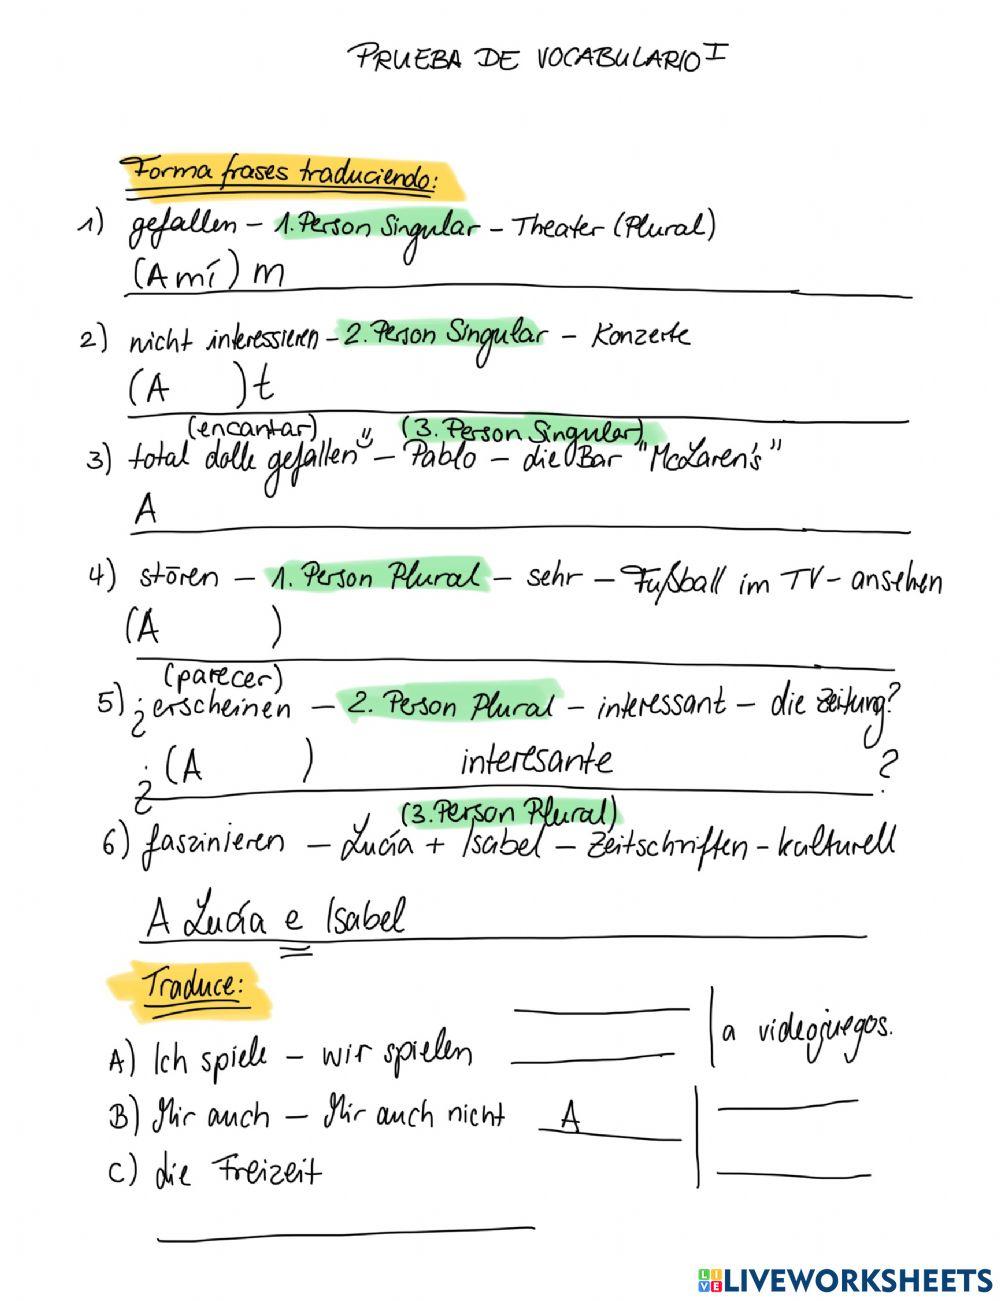 PRUEBA DE VOCABULARIO I
Forma frases traduciendo:
1) gefallen – 1. Person Singular – Theater (Plural)
(A mí) m
2) nicht interessieren – 2. Person Singular – Konzerte
(A )t
(encantar) (3. Person Singular)
3) total dolle gefallen – Pablo – die Bar "McLaren's"
A
4) stören – 1. Person Plural – sehr – Fußball im TV – ansehen
(A )
(parecer)
5) ¿erscheinen – 2. Person Plural – interessant – die Zeitung?
¿(A ) interesante ?
(3. Person Plural)
6) faszinieren – Lucía + Isabel – Zeitschriften – kulturell
A Lucía e Isabel
Traduce:
A) Ich spiele – wir spielen | a videojuegos.
B) Mir auch – Mir auch nicht A
C) die Freizeit
LIVEWORKSHEETS